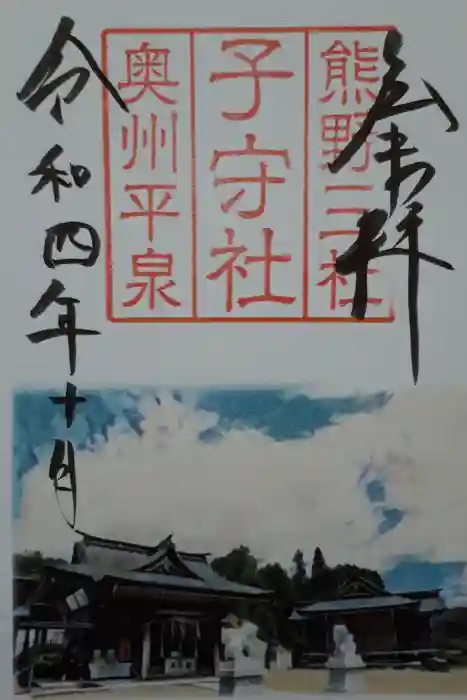 拝
熊野三社
子守社
奥州平泉
令和四年十月